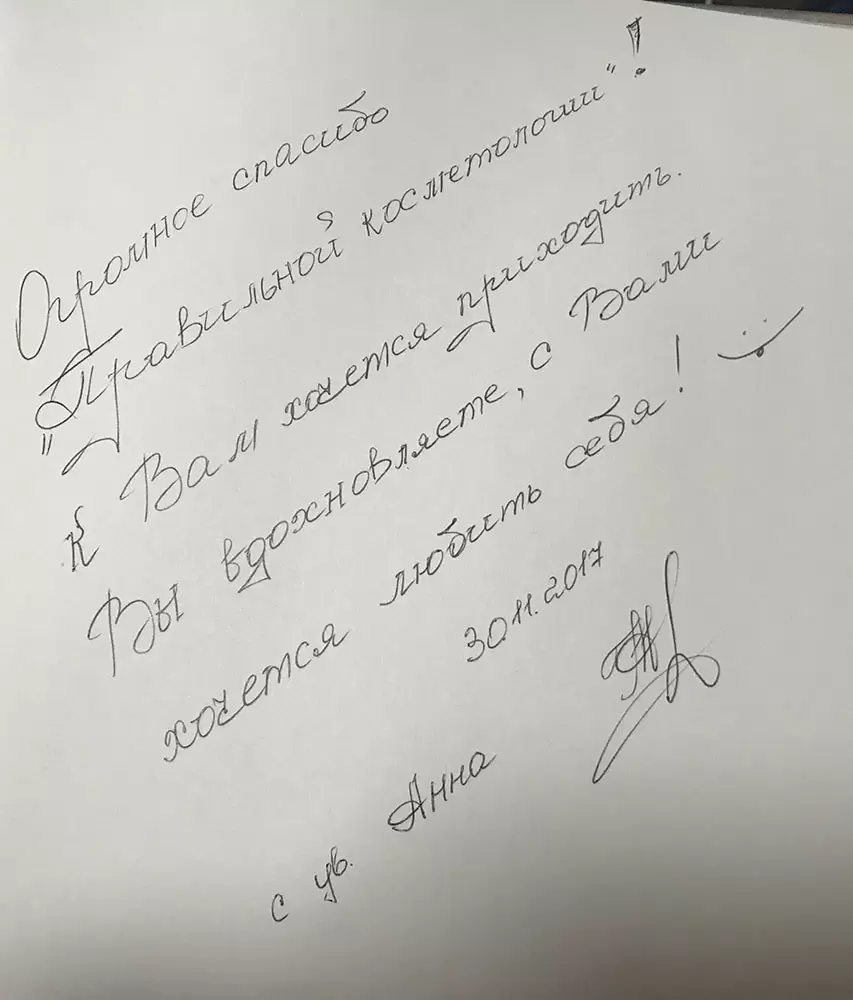 Огромное спасибо
"Правильной косметологии"!
К Вам хочется приходить.
Вы вдохновляете, с Вами
хочется любить себя!
30 11.2017
с ув. Анна